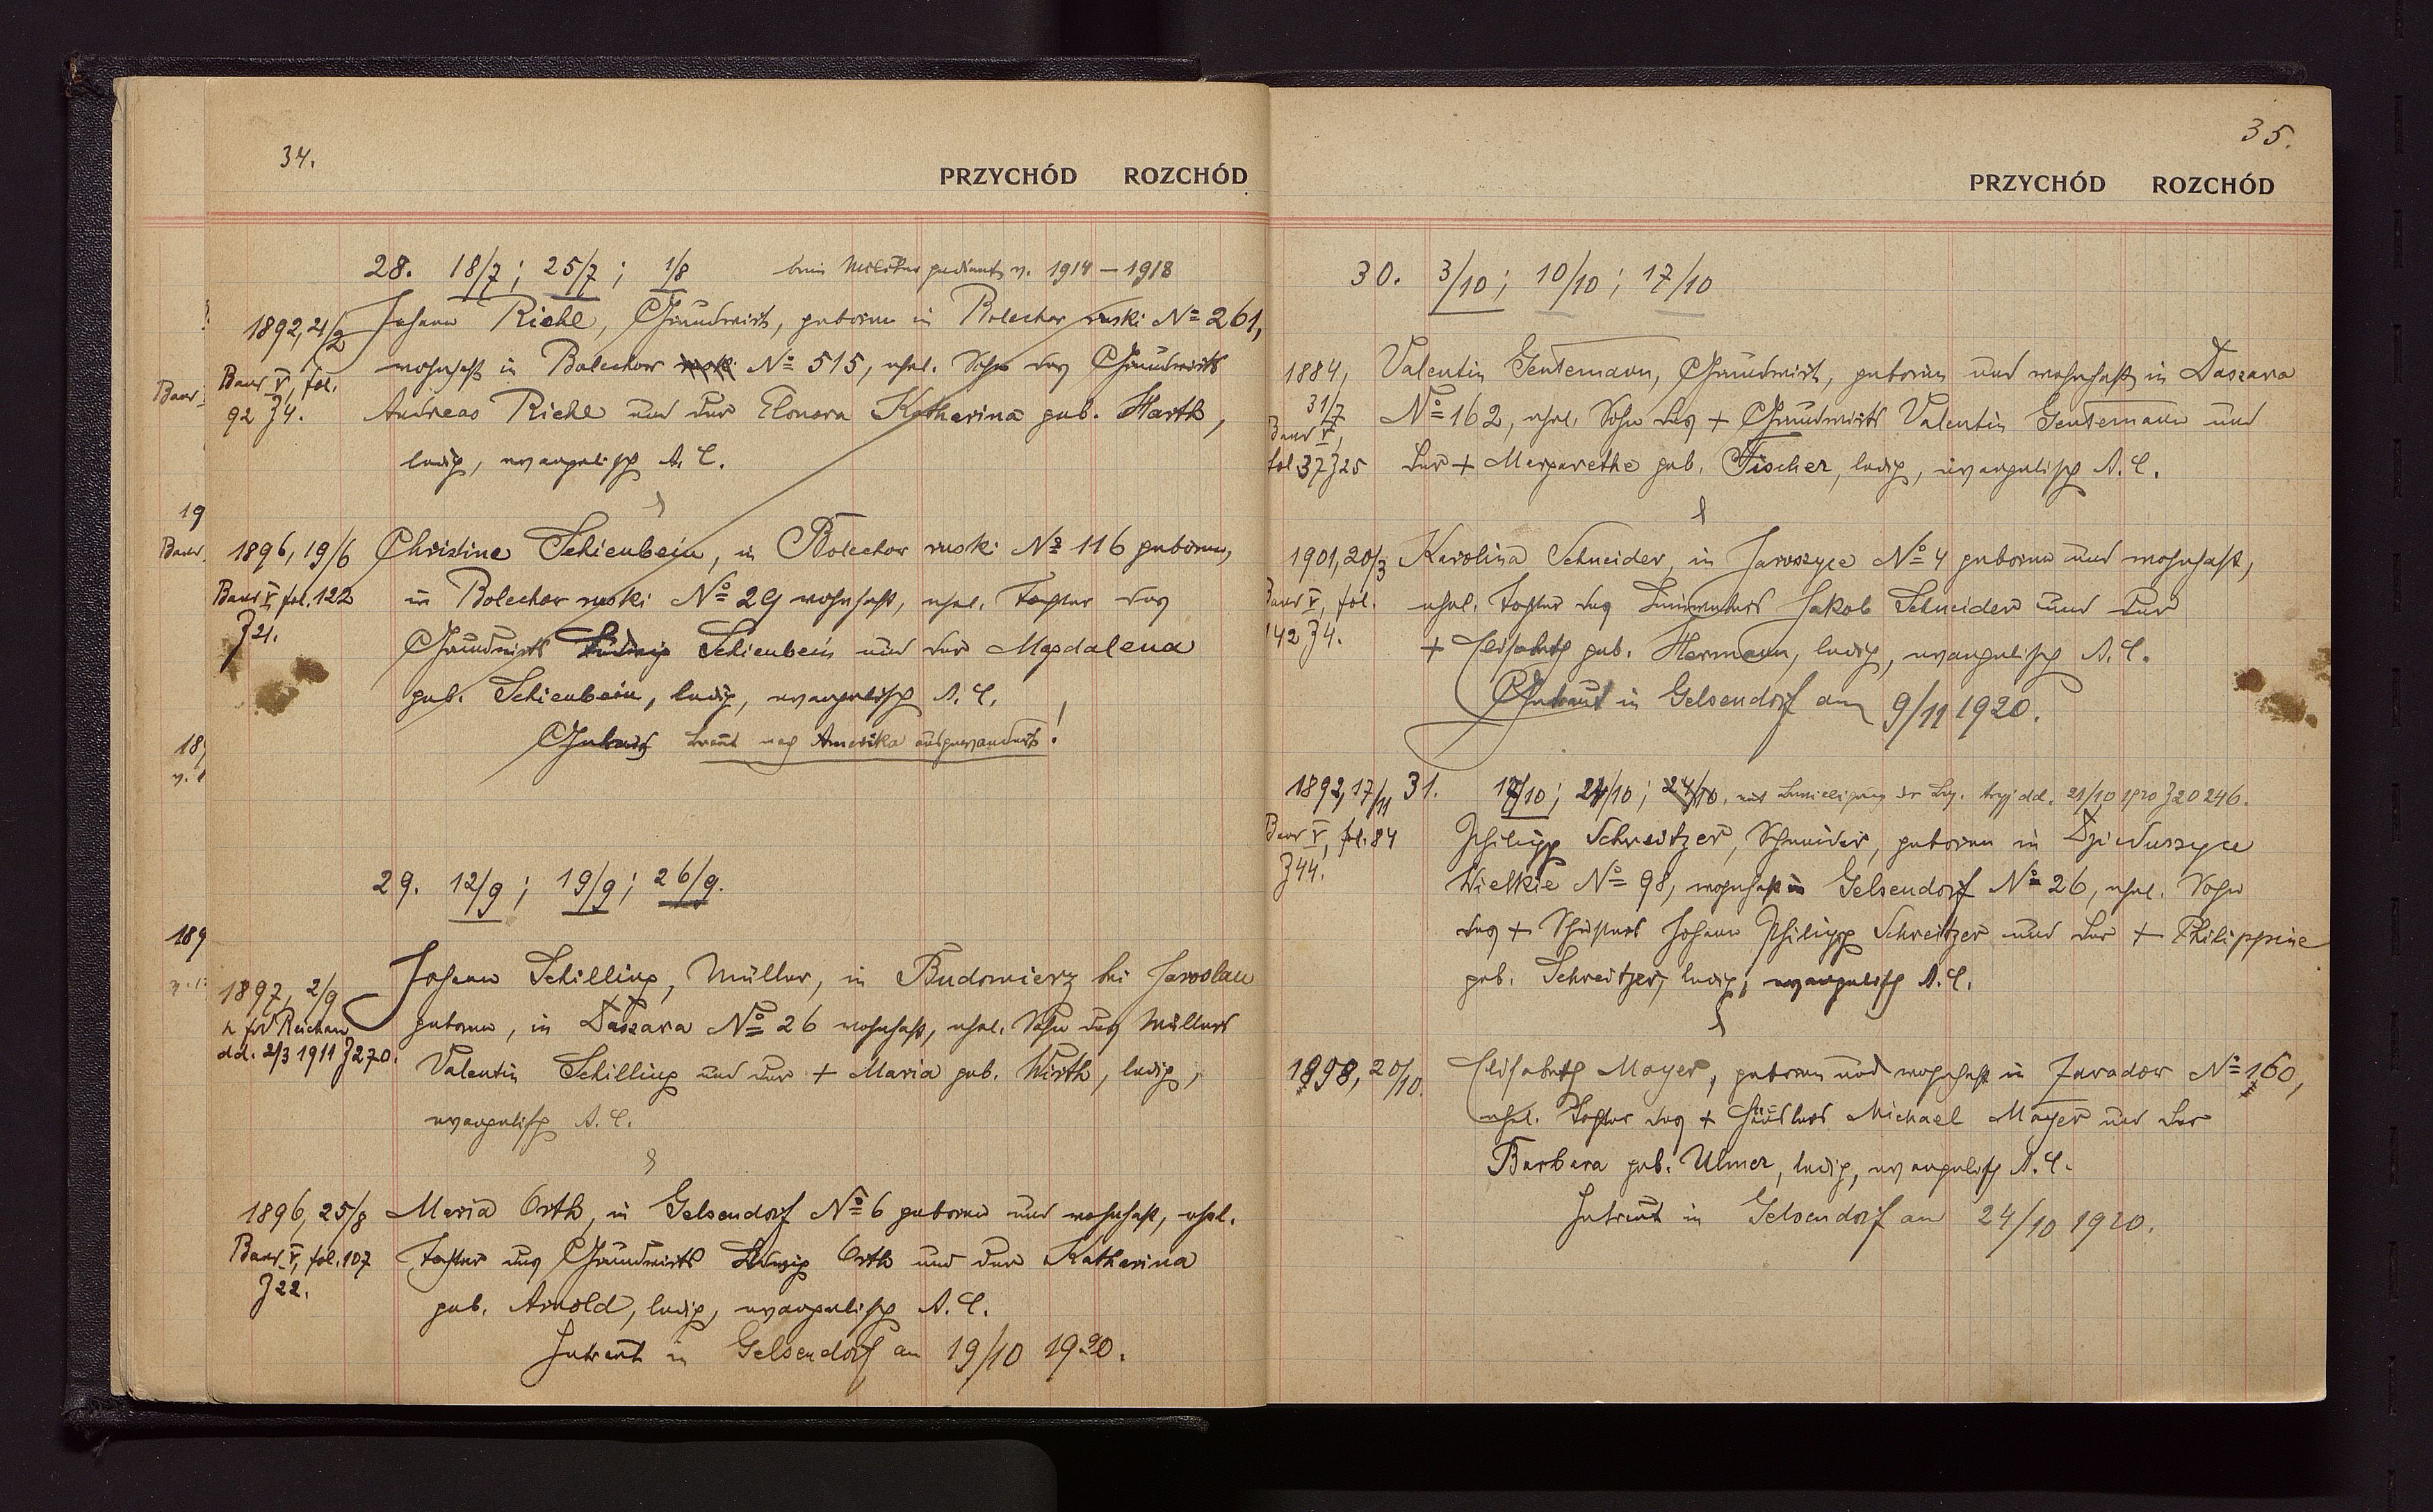 34.
PRZYCHÓD ROZCHÓD
28. 18/7; 25/7; 1/8 beim Militär gedient v. 1914 – 1918
1892, 21/2 Johann Riehl, Grundwirt, geboren in Bolechow ruski No 261,
Band V, fol. wohnhaft in Bolechow ruski No 515, ehel. Sohn des Grundwirts
92 Z 4. Andreas Riehl und der Elonora Katharina geb. Harth,
ledig, evangelisch A. C.
&
1896, 19/6 Christine Schienbein, in Bolechow ruski No 116 geboren,
Band V fol. 122 in Bolechow ruski No 29 wohnhaft, ehel. Tochter des
Z 21. Grundwirts Ludwig Schienbein und der Magdalena
geb. Schienbein, ledig, evangelisch A. C.
Getraut Braut nach Amerika ausgewandert!
29. 12/9; 19/9; 26/9.
1897, 2/9 Johann Schilling, Müller, in Budomierz bei Jaroslau
dd. 2/3 1911 Z 270. geboren, in Daszawa No 26 wohnhaft, ehel. Sohn des Müllers
Valentin Schilling und der + Maria geb. Wirth, ledig,
evangelisch A. C.
&
1896, 25/8 Maria Orth, in Gelsendorf No 6 geboren und wohnhaft, ehel.
Band V, fol. 107 Tochter des Grundwirts Ludwig Orth und der Katharina
Z 22. geb. Arnold, ledig, evangelisch A. C.
Getraut in Gelsendorf am 19/10 1920.
35.
PRZYCHÓD ROZCHÓD
30. 3/10; 10/10; 17/10
1884, Valentin Gentemann, Grundwirt, geboren und wohnhaft in Daszawa
31/7 No 162, ehel. Sohn des + Grundwirts Valentin Gentemann und
Band V,
fol 37 Z 25 der + Margarethe geb. Fischer, ledig, evangelisch A. C.
&
1901, 20/3 Karolina Schneider, in Jaroszyce No 4 geboren und wohnhaft,
Band V, fol. ehel. Tochter des Jakob Schneider und der
142 Z 4. + Elisabeth geb. Hermann, ledig, evangelisch A. C.
Getraut in Gelsendorf am 9/11 1920.
1892, 17/11 31. 17/10; 24/10; 24/10, mit Bewilligung dd. 21/10 1920 Z 20246.
Band V, fol. 84 Philipp Schreitzer, Schneider, geboren in Dzieduszyce
Z 44. Wielkie No 98, wohnhaft in Gelsendorf No 26, ehel. Sohn
des + Schusters Johann Philipp Schreitzer und der + Philippine
geb. Schreitzer, ledig, evangelisch A. C.
&
1898, 20/10. Elisabeth Mayer, geboren und wohnhaft in Zawadow No 160,
ehel. Tochter des + Häuslers Michael Mayer und der
Barbara geb. Ulmer, ledig, evangelisch A. C.
Getraut in Gelsendorf am 24/10 1920.